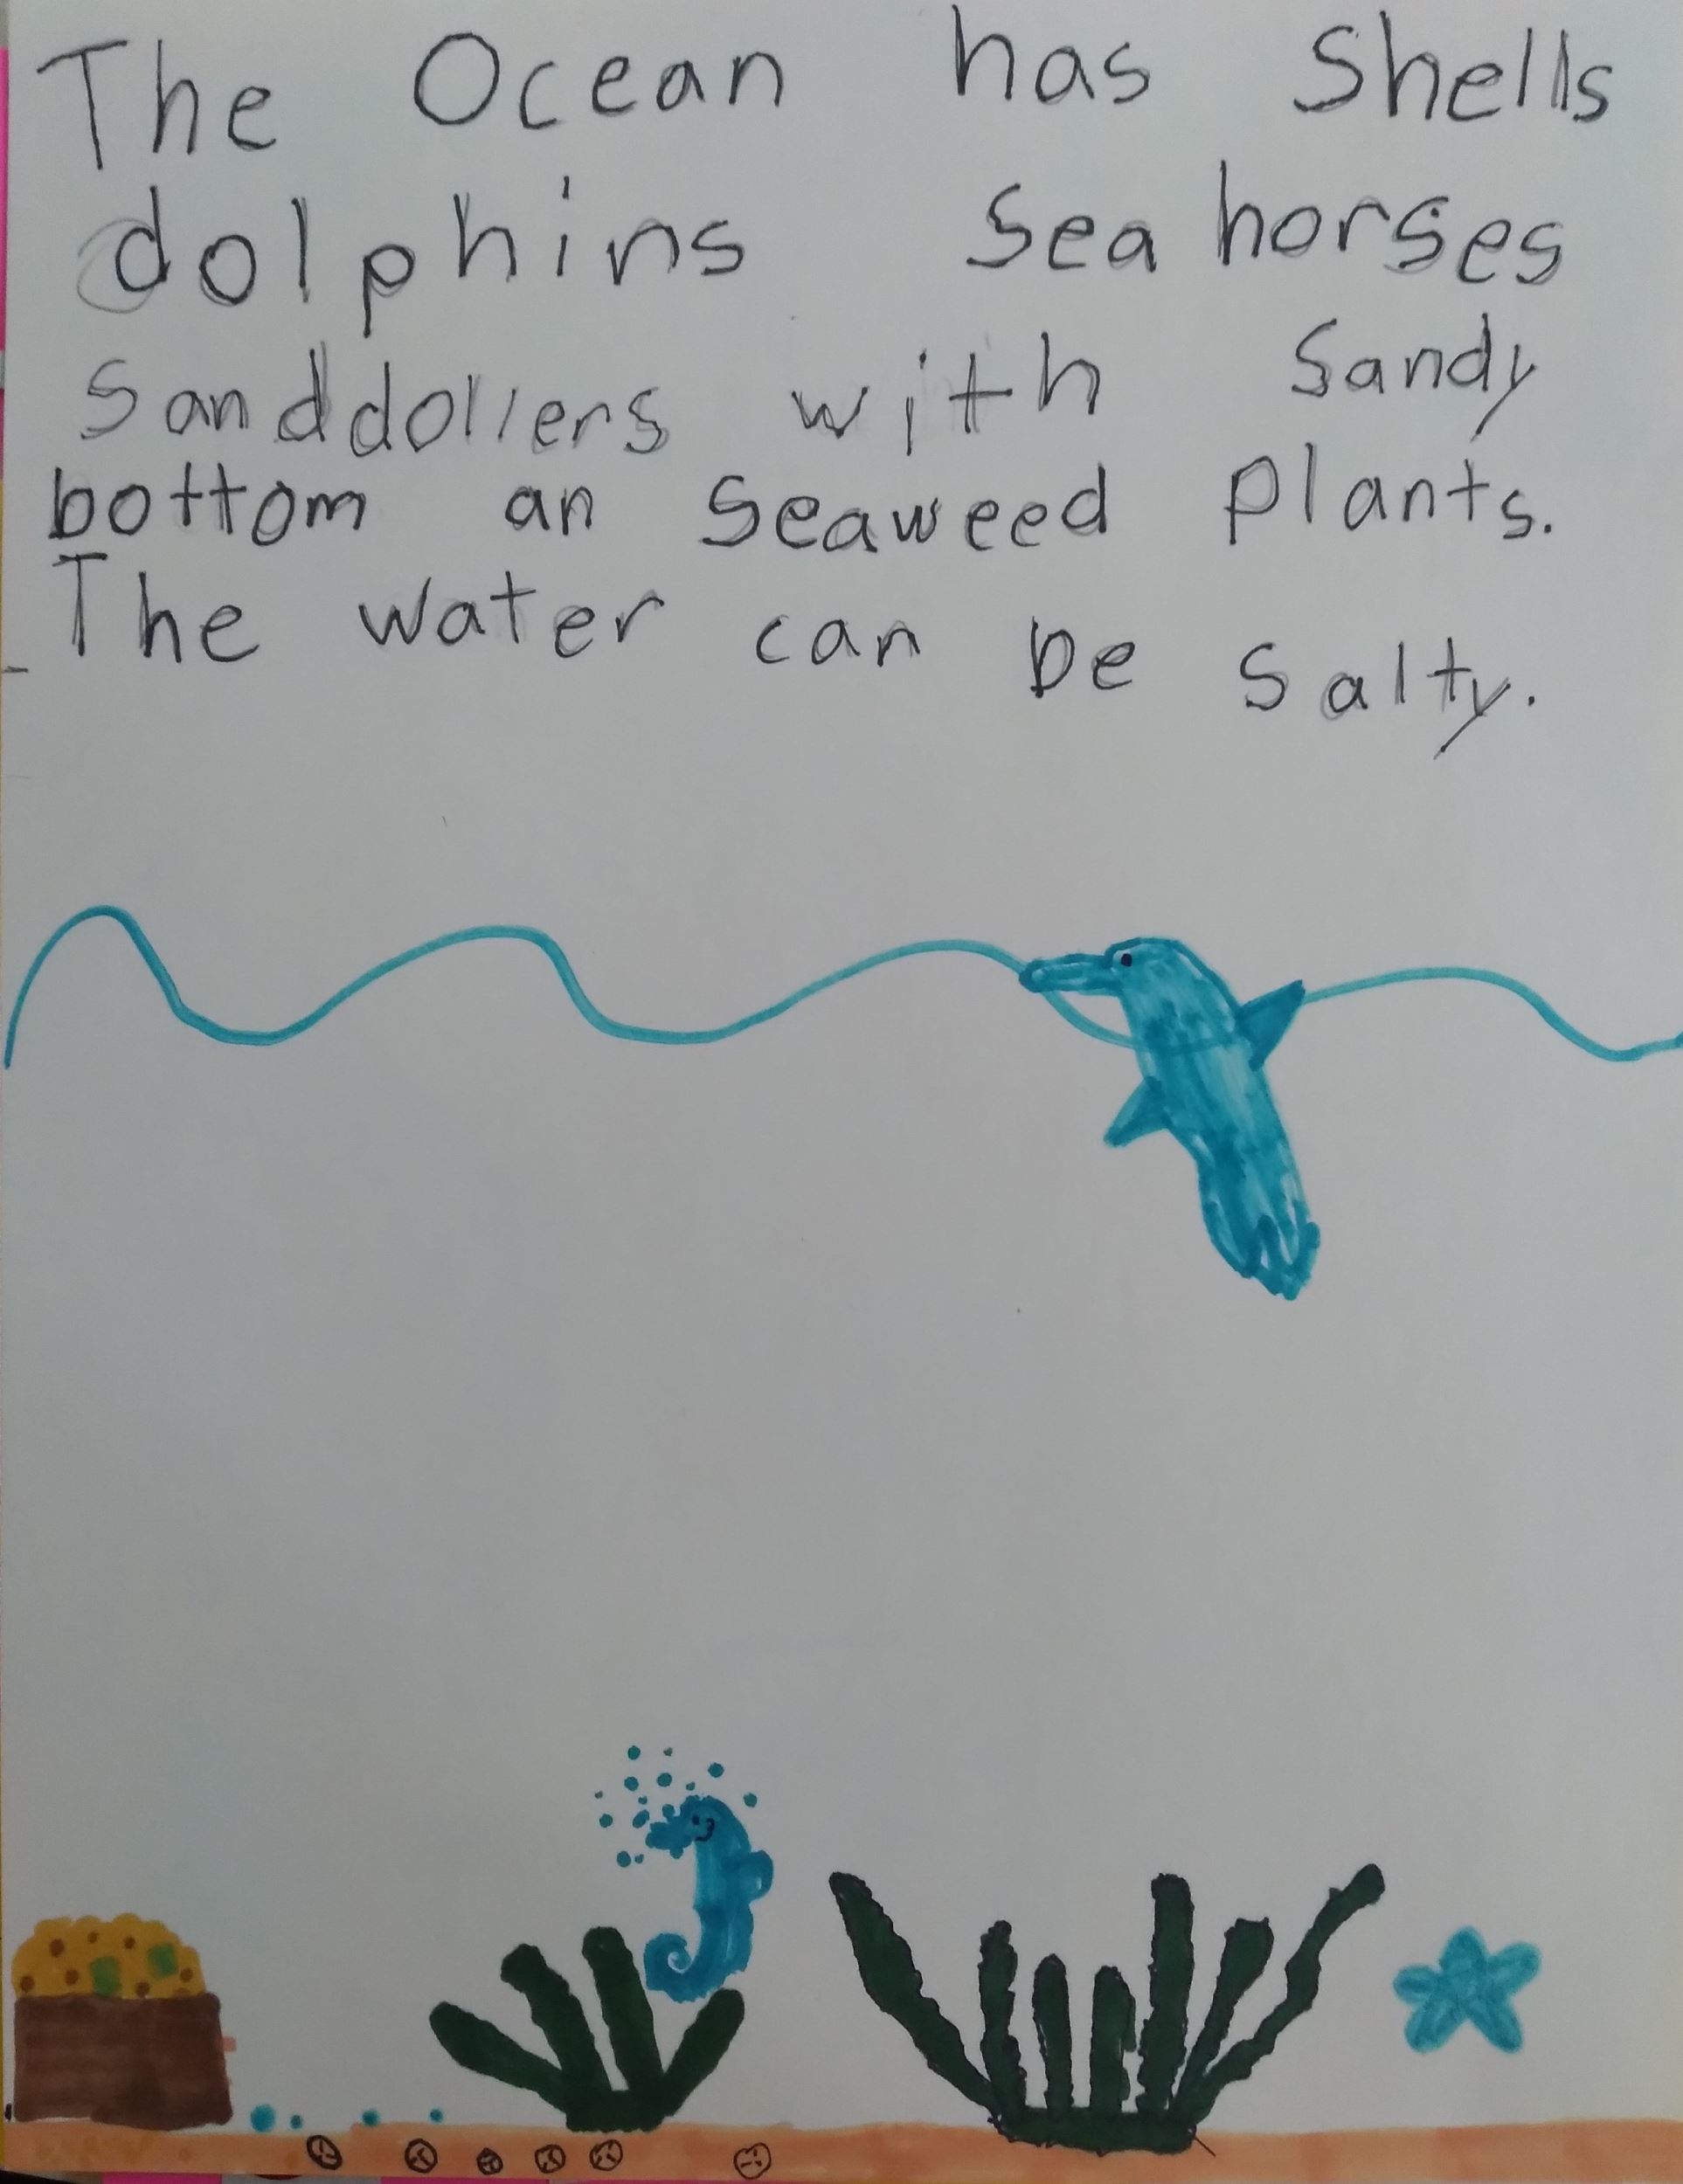 The Ocean has Shells
dolphins sea horses
Sanddollers with Sandy
bottom an Seaweed Plants.
The water can be salty.